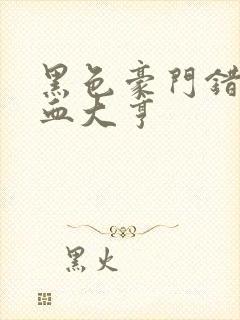 黑色豪門錯
血大亨
黑火